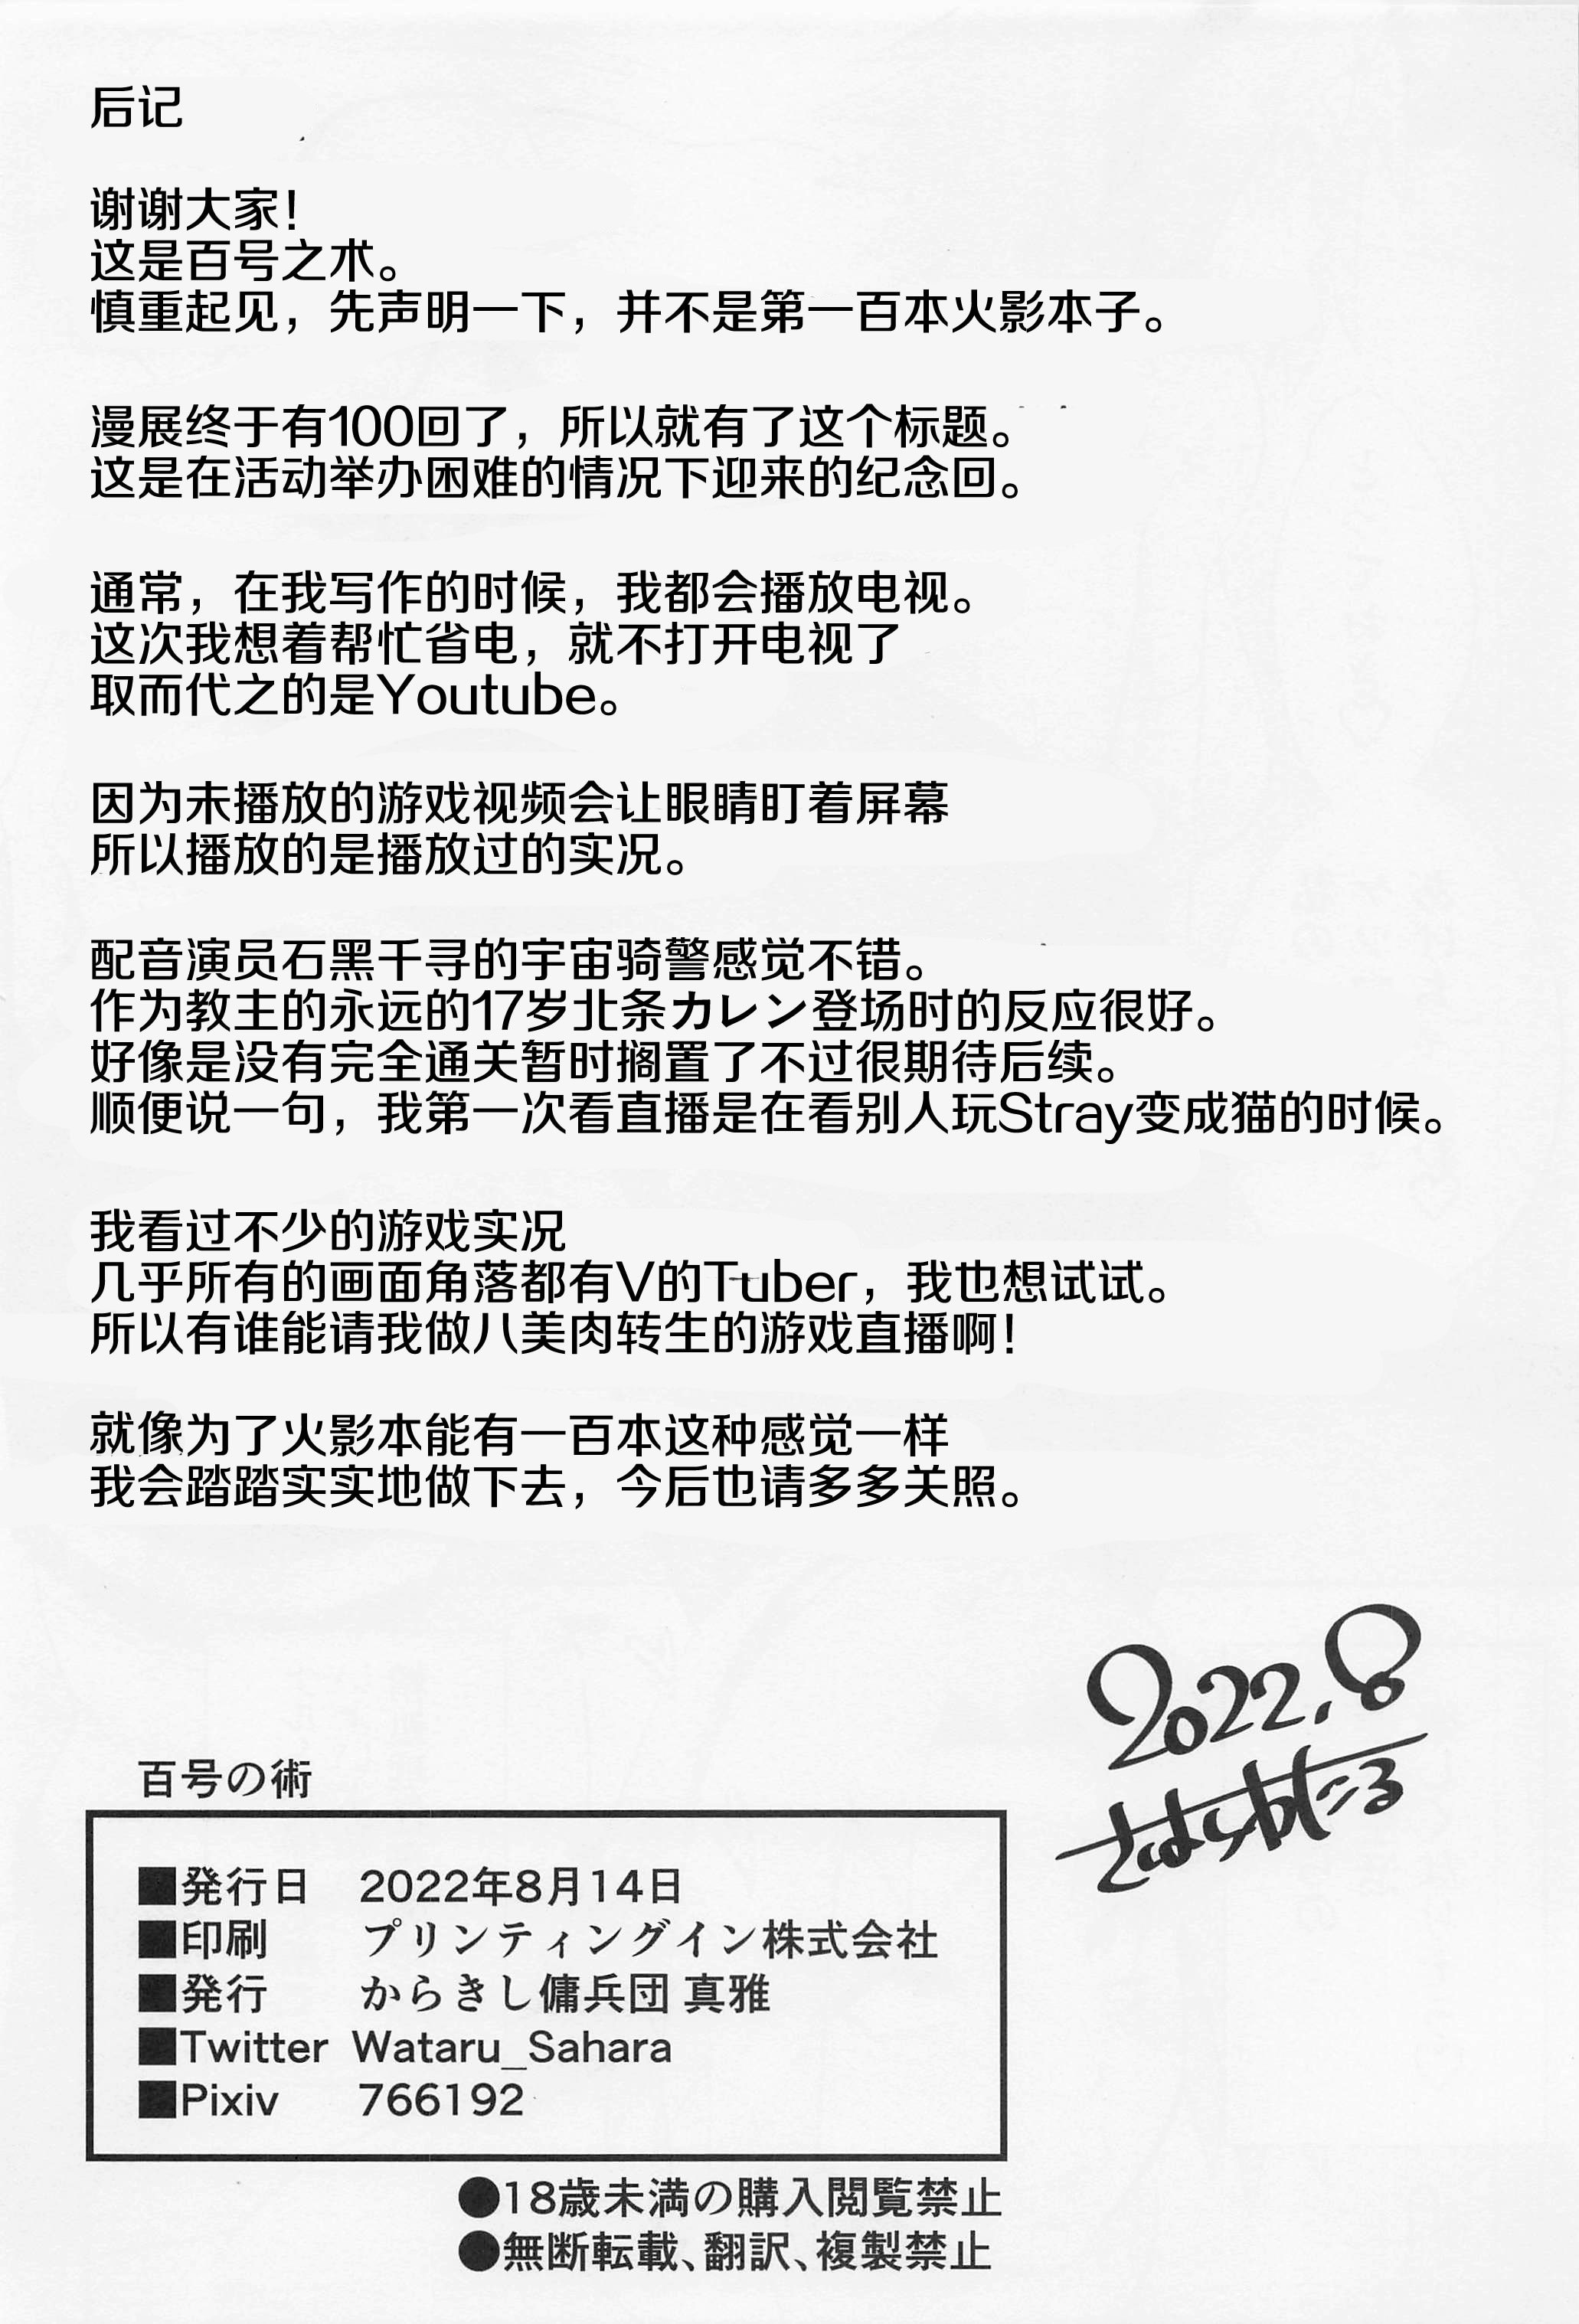 后记
谢谢大家！
这是百号之术。
慎重起见，先声明一下，并不是第一百本火影本子。
漫展终于有100回了，所以就有了这个标题。
这是在活动举办困难的情况下迎来的纪念回。
通常，在我写作的时候，我都会播放电视。
这次我想着帮忙省电，就不打开电视了
取而代之的是Youtube。
因为未播放的游戏视频会让眼睛盯着屏幕
所以播放的是播放过的实况。
配音演员石黑千寻的宇宙骑警感觉不错。
作为教主的永远的17岁北条カレン登场时的反应很好。
好像是没有完全通关暂时搁置了不过很期待后续。
顺便说一句，我第一次看直播是在看别人玩Stray变成猫的时候。
我看过不少的游戏实况
几乎所有的画面角落都有V的Tuber，我也想试试。
所以有谁能请我做八美肉转生的游戏直播啊！
就像为了火影本能有一百本这种感觉一样
我会踏踏实实地做下去，今后也请多多关照。
2022.8
さはらわたる
百号の術
■発行日 2022年8月14日
■印刷 プリンティングイン株式会社
■発行 からきし傭兵団 真雅
■Twitter Wataru_Sahara
■Pixiv 766192
●18歳未満の購入閲覧禁止
●無断転載、翻訳、複製禁止